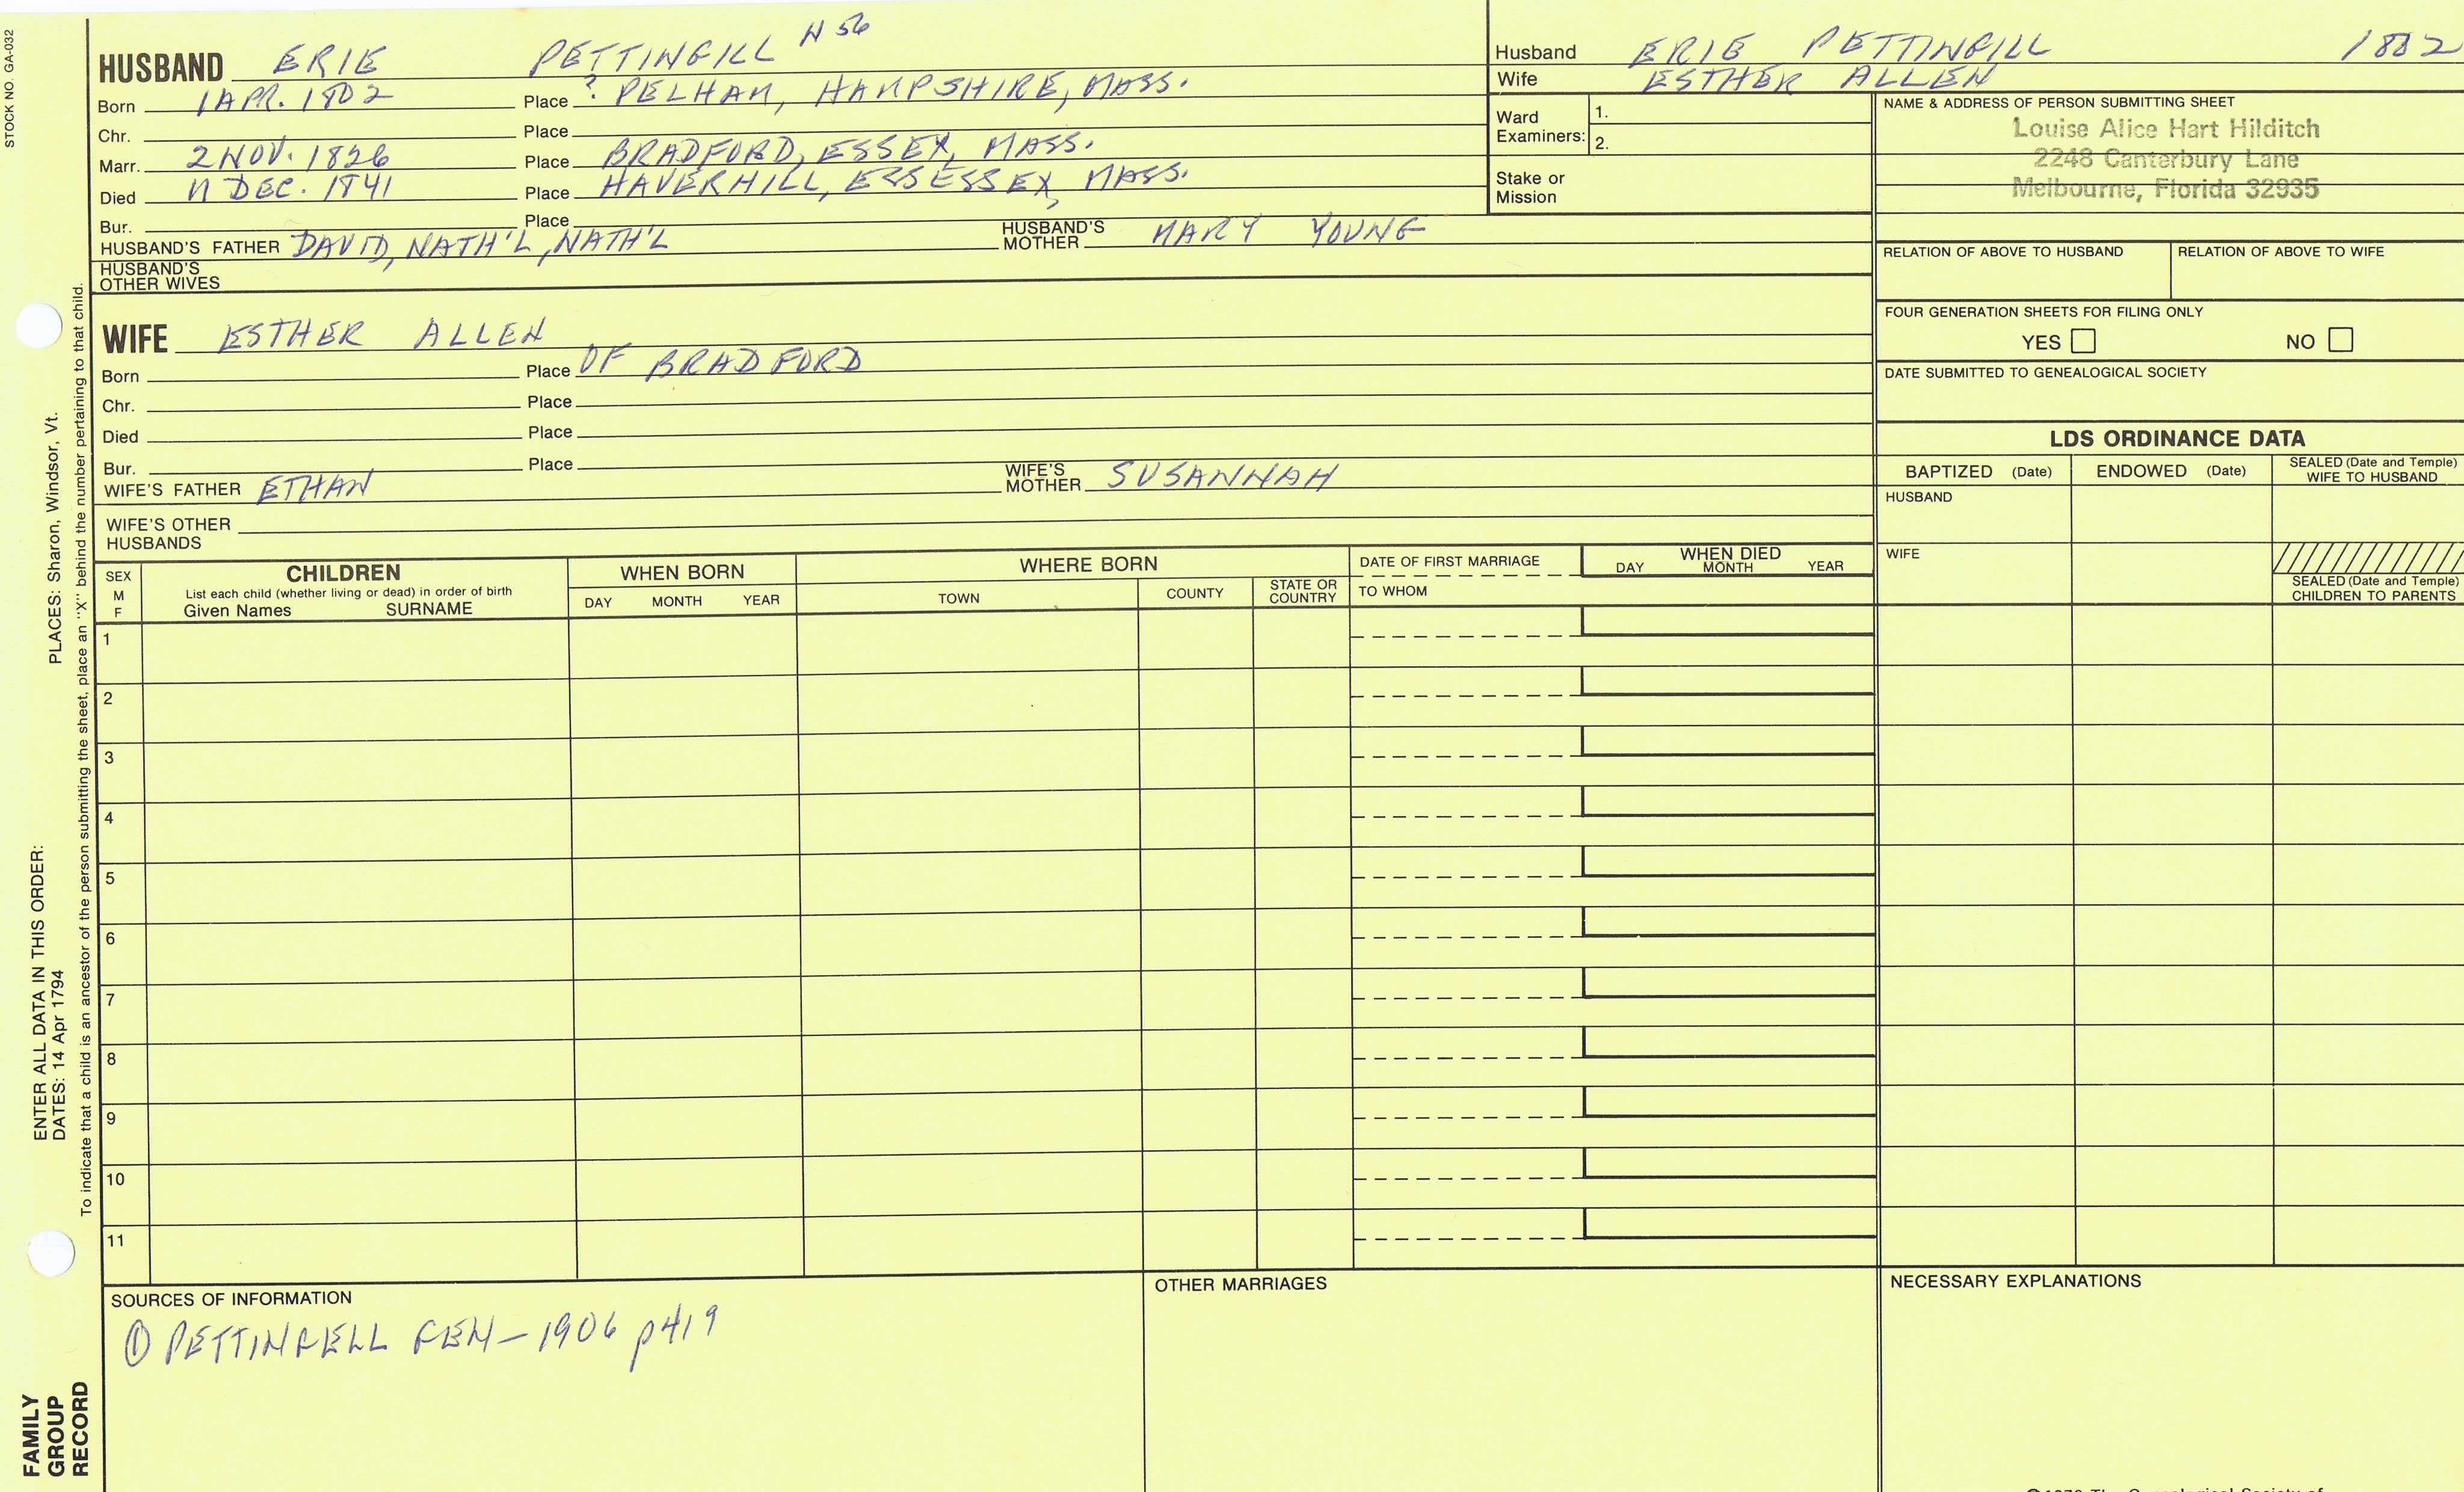 STOCK NO. GA-032
HUSBAND ERIE PETTINGILL N 56
Born 1 APR. 1802 Place ? PELHAM, HAMPSHIRE, MASS.
Chr. Place
Marr. 2 NOV. 1826 Place BRADFORD, ESSEX, MASS.
Died 11 DEC. 1841 Place HAVERHILL, ESSESSEX, MASS.
Bur. Place
HUSBAND'S FATHER DAVID, NATH'L, NATH'L HUSBAND'S MOTHER MARY YOUNG
HUSBAND'S OTHER WIVES
WIFE ESTHER ALLEN
Born Place OF BRADFORD
Chr. Place
Died Place
Bur. Place
WIFE'S FATHER ETHAN WIFE'S MOTHER SUSANNAH
WIFE'S OTHER HUSBANDS
Husband ERIE PETTINGILL 1802
Wife ESTHER ALLEN
Ward Examiners: 1.
2.
Stake or Mission
NAME & ADDRESS OF PERSON SUBMITTING SHEET
Louise Alice Hart Hilditch
2248 Canterbury Lane
Melbourne, Florida 32935
RELATION OF ABOVE TO HUSBAND RELATION OF ABOVE TO WIFE
FOUR GENERATION SHEETS FOR FILING ONLY
YES NO
DATE SUBMITTED TO GENEALOGICAL SOCIETY
LDS ORDINANCE DATA
BAPTIZED (Date) ENDOWED (Date) SEALED (Date and Temple) WIFE TO HUSBAND
HUSBAND
WIFE
SEALED (Date and Temple)
CHILDREN TO PARENTS
SEX M F
CHILDREN
List each child (whether living or dead) in order of birth
Given Names SURNAME
WHEN BORN
DAY MONTH YEAR
WHERE BORN
TOWN COUNTY STATE OR COUNTRY
DATE OF FIRST MARRIAGE
TO WHOM
WHEN DIED
DAY MONTH YEAR
1
2
3
4
5
6
7
8
9
10
11
SOURCES OF INFORMATION
① PETTINGELL GEN – 1906 p419
OTHER MARRIAGES
NECESSARY EXPLANATIONS
ENTER ALL DATA IN THIS ORDER:
DATES: 14 Apr 1794 PLACES: Sharon, Windsor, Vt.
To indicate that a child is an ancestor of the person submitting the sheet, place an "X" behind the number pertaining to that child.
FAMILY
GROUP
RECORD